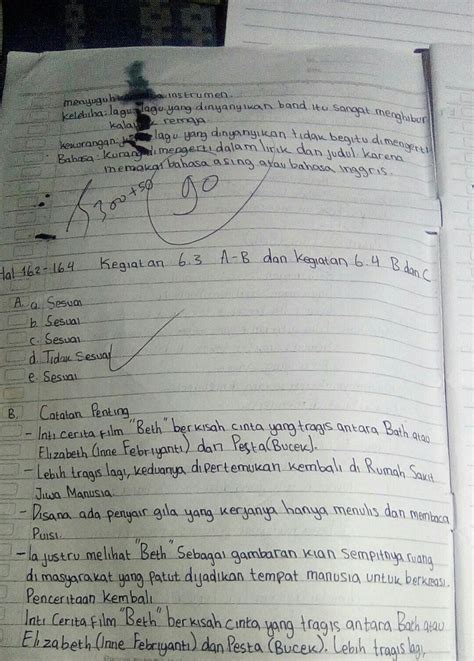 menyuguh instrumen.
Kelebiha: lagu-lagu yang dinyanyikan band itu sangat menghibur
kala remaja
kekurangan: lagu yang dinyanyikan tidak begitu dimengerti
Bahasa: Kurang dimengerti dalam lirik dan judul karena
memakai bahasa asing atau bahasa inggris.
300+50 90
Hal 162-164 Kegiatan 6.3 A-B dan Kegiatan 6.4 B dan C
A. a. Sesuai
b. Sesuai
c. Sesuai
d. Tidak Sesuai
e. Sesuai
B. Catatan Penting
- Inti cerita film "Beth" berkisah cinta yang tragis antara Bath atau
Elizabeth (Inne Febriyanti) dan Pesta (Bucek).
- Lebih tragis lagi, keduanya dipertemukan kembali di Rumah Sakit
Jiwa Manusia.
- Disana ada penyair gila yang kerjanya hanya menulis dan membaca
Puisi.
- Ia justru melihat "Beth" Sebagai gambaran kian sempitnya ruang
di masyarakat yang patut dijadikan tempat manusia untuk berkreasi.
Penceritaan Kembali
Inti Cerita film "Beth" berkisah cinta yang tragis antara Bath atau
Elizabeth (Inne Febriyanti) dan Pesta (Bucek). Lebih tragis lagi,